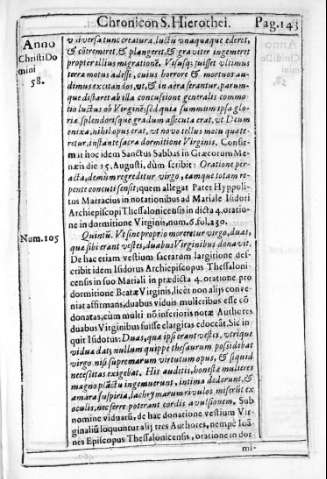 Chronicon S. Hierothei. Pag. 143
Anno
Christi Do
mini
58.
universa tunc creatura, luctu unaquæque ederet,
& cōtremeret, & plangeret, & graviter ingemeret
propter illius migrationē. Visusq; fuisset ultimus
terræ motus adesse, cuius horrore & mortuos au-
dimus excitandos, ut, & in aëra ferantur, parum-
que distaret ab illa concussione generalis commo-
tio luctus ob Virginē: sed quia summum ipsa glo-
riæ splendorisque gradum assecuta erat, ut Deum
enixa, nihil opus erat, ut novo tellus motu quate-
retur, instante sacra dormitione Virginis. Confir-
mat hoc idem Sanctus Sabbas in Græcorum Me-
næis die 25. Augusti, dum scribit: Oratione per-
acta, demum regreditur virgo, eamque totam re-
pente concuti sensit, quem allegat Pater Hyppoli-
tus Marracius in notationibus ad Mariale Isidori
Archiepiscopi Thessalonicensis in dicta 4. oratio-
ne in dormitione Virginis, num. 6. fol. 230.
Num. 105
Quintū. Ut sine proprio moreretur virgo, duas,
quæ sibi erant vestes, duabus Virginibus donavit.
De hac etiam vestium sacrarum largitione de-
scribit idem Isidorus Archiepiscopus Thessaloni-
censis in suo Mariali in prædicta 4. oratione pro
dormitione Beatæ Virginis, licèt non alij conve-
niat affirmans, duabus viduis mulieribus esse cō
donatas, cùm multi nō inferioris notæ Authores
duabus Virginibus fuisse elargitas edoceāt. Sic in
quit Isidorus: Duas, qua ipsi erant vestes, utrique
viduæ dat, nullum quippe thesaurum possidebat
virgo nisi supremarum virtutum opus, & siquid
necessitas exigebat. His auditis, honestæ mulieres
magno plāctu ingemuerunt, intima doluerunt, &
amara suspiria, lachrymarum rivulos miserūt ex
oculis, nec ferre poterant cordis avulsionem. Sub
nomine viduarū, de hac donatione vestium Vir-
ginaliū loquuntur alij tres Authores, nempè Ioā-
nes Episcopus Thessalonicensis, oratione in dor-
mi-